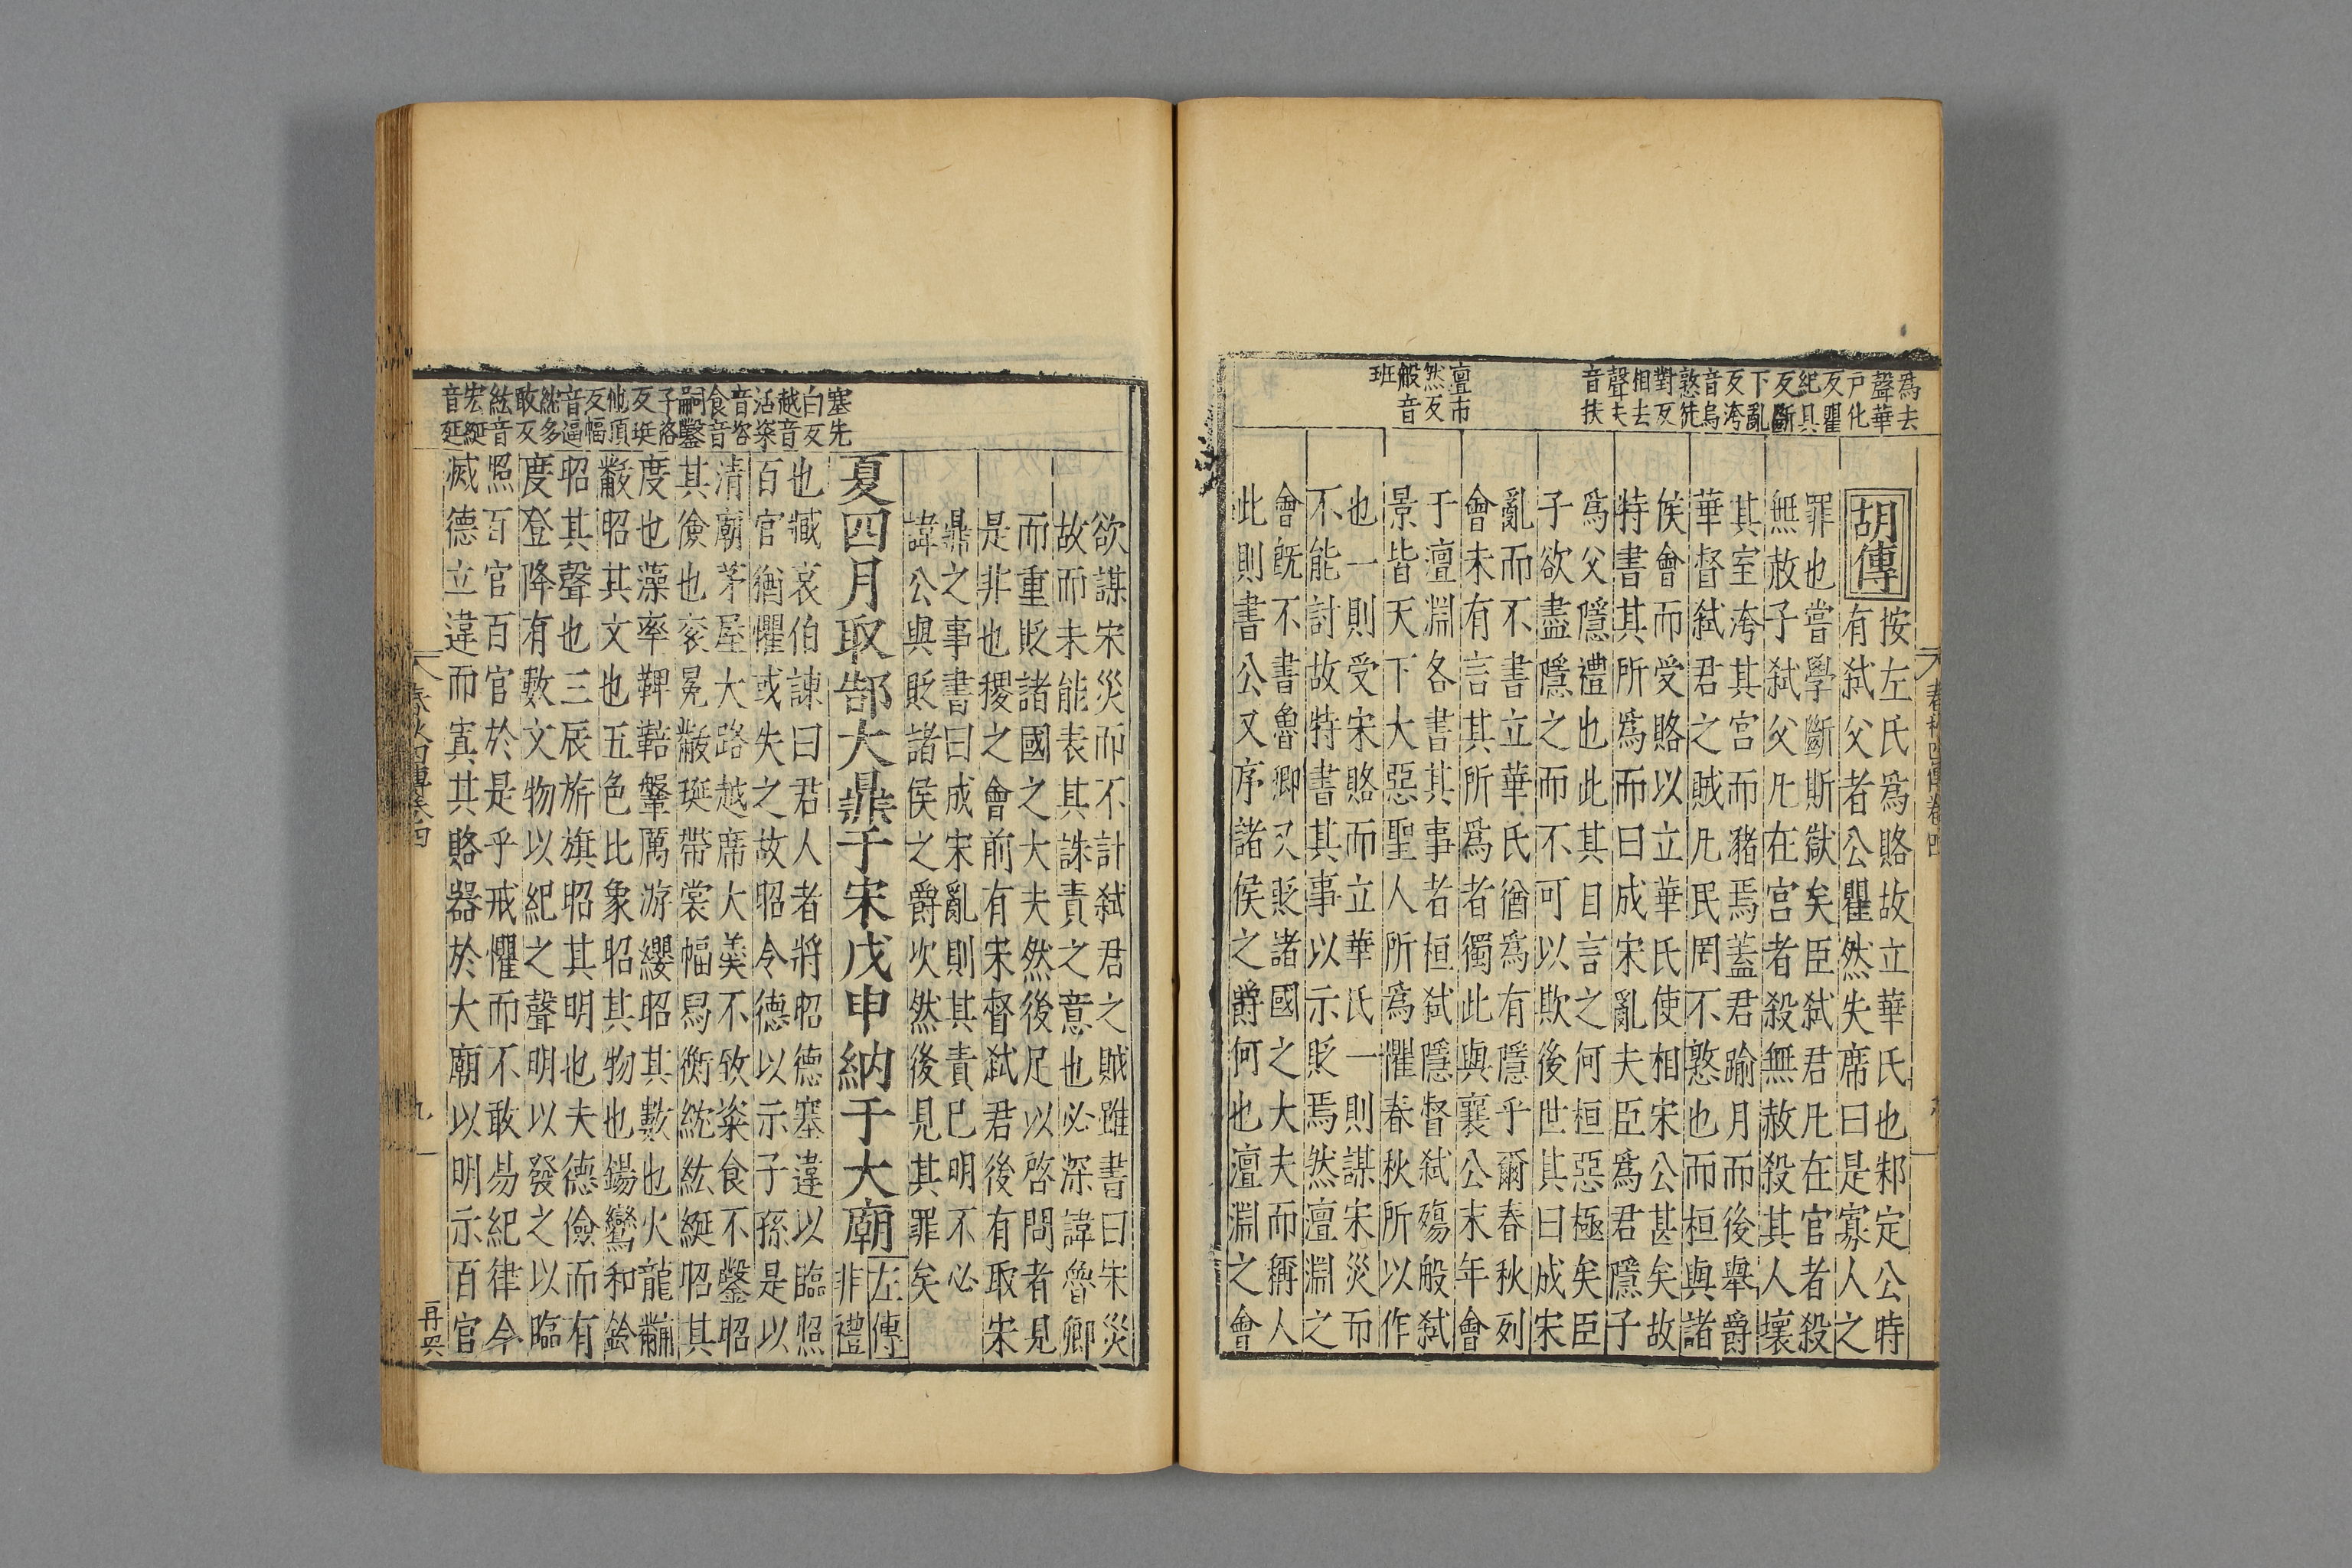 為去
聲華
戸化
反瞿
紀具
反斷
下亂
反洿
音烏
憝徒
對反
相去
聲夫
音扶
澶市
然反
般音
班
胡傳
按左氏爲賂故立華氏也邾定公時
有弑父者公瞿然失席曰是寡人之
罪也嘗學斷斯獄矣臣弑君凡在官者殺
無赦子弑父凡在宮者殺無赦殺其人壞
其室洿其宮而豬焉蓋君踰月而後舉爵
華督弑君之賊凡民罔不憝也而桓與諸
侯會而受賂以立華氏使相宋公甚矣故
特書其所爲而曰成宋亂夫臣爲君隱子
爲父隱禮也此其目言之何桓惡極矣臣
子欲盡隱之而不可以欺後世其曰成宋
亂而不書立華氏猶爲有隱乎爾春秋列
會未有言其所爲者獨此與襄公末年會
于澶淵各書其事者桓弑隱督弑殤般弑
景皆天下大惡聖人所爲懼春秋所以作
也一則受宋賂而立華氏一則謀宋災而
不能討故特書其事以示貶焉然澶淵之
會旣不書魯卿又貶諸國之大夫而稱人
此則書公又序諸侯之爵何也澶淵之會
塞先
白反
越音
活粢
音咨
食音
嗣鑿
子洛
反珽
他頂
反幅
音逼
紞多
敢反
紘音
宏綖
音延
欲謀宋災而不計弑君之賊雖書曰宋災
故而未能表其誅責之意也必深諱魯卿
而重貶諸國之大夫然後足以啓問者見
是非也稷之會前有宋督弑君後有取宋
鼎之事書曰成宋亂則其責已明不必
諱公與貶諸侯之爵次然後見其罪矣
夏四月取郜大鼎于宋戊申納于大廟
左傳
非禮
也臧哀伯諫曰君人者將昭德塞違以臨照
百官猶懼或失之故昭令德以示子孫是以
清廟茅屋大路越席大羹不致粢食不鑿昭
其儉也衮冕黻珽帶裳幅舄衡紞紘綖昭其
度也藻率鞞鞛鞶厲游纓昭其數也火龍黼
黻昭其文也五色比象昭其物也鍚鸞和鈴
昭其聲也三辰旂旗昭其明也夫德儉而有
度登降有數文物以紀之聲明以發之以臨
照百官百官於是乎戒懼而不敢易紀律今
滅德立違而寘其賂器於大廟以明示百官
春秋四傳卷四
九